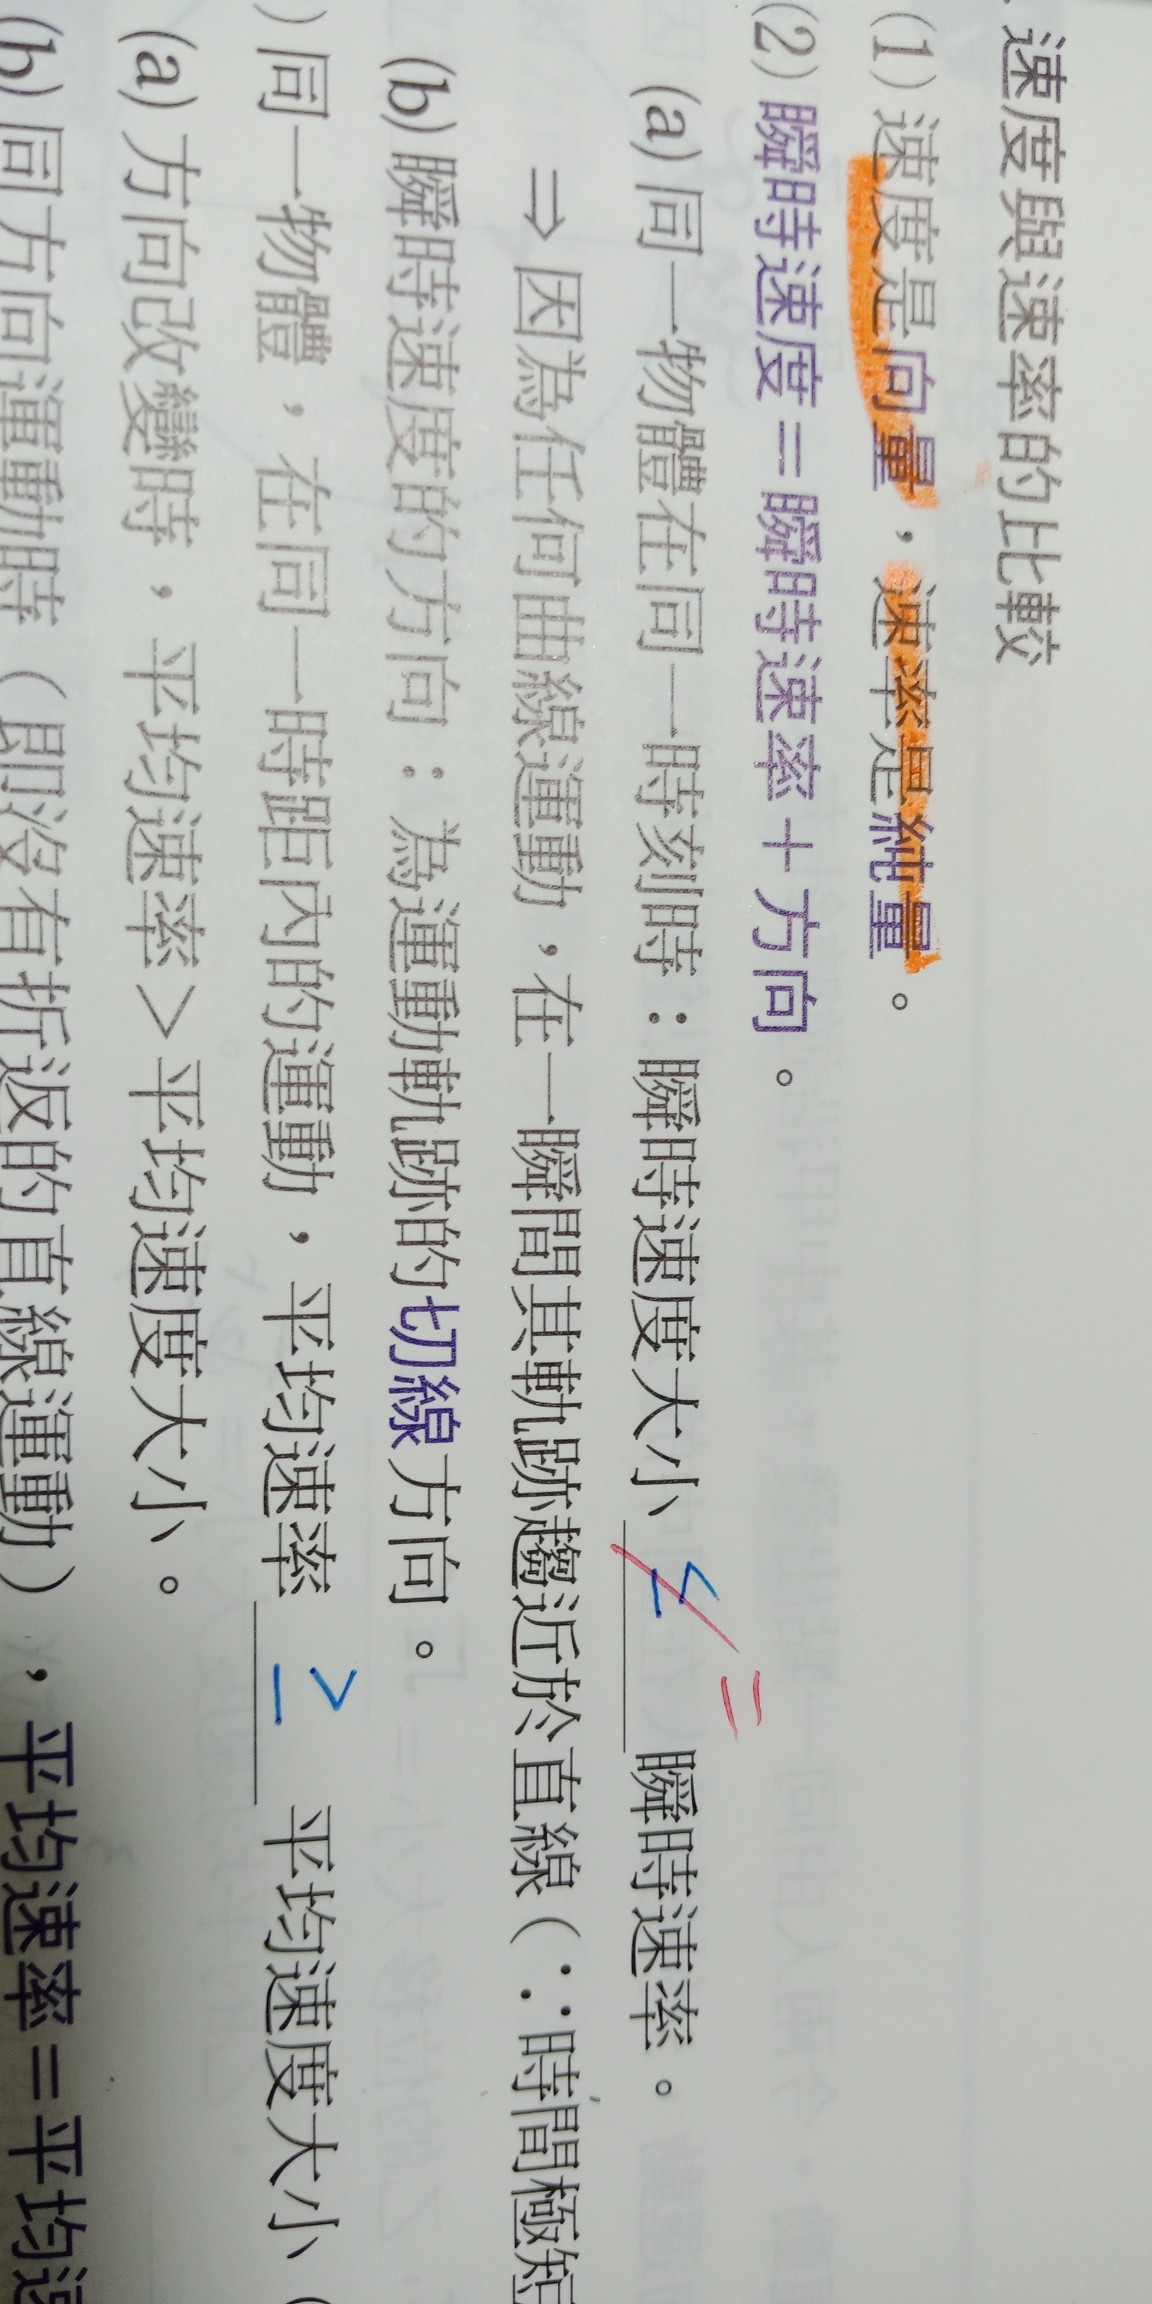 速度與速率的比較
(1) 速度是向量，速率是純量。
(2) 瞬時速度＝瞬時速率＋方向。
(a) 同一物體在同一時刻時：瞬時速度大小 ≤ = 瞬時速率。
⇒ 因為任何曲線運動，在一瞬間其軌跡趨近於直線（∵時間極短
(b) 瞬時速度的方向：為運動軌跡的切線方向。
) 同一物體，在同一時距內的運動，平均速率 ≥ 平均速度大小（
(a) 方向改變時，平均速率＞平均速度大小。
(b) 同方向運動時（即沒有折返的直線運動），平均速率＝平均速